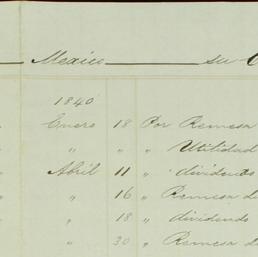 Mexico su
1840
Enero 18 Por Remesa
" " " Utilidad
Abril 11 " dividendo
" 16 " Remesa de
" 18 " dividendo
" 30 " Remesa de